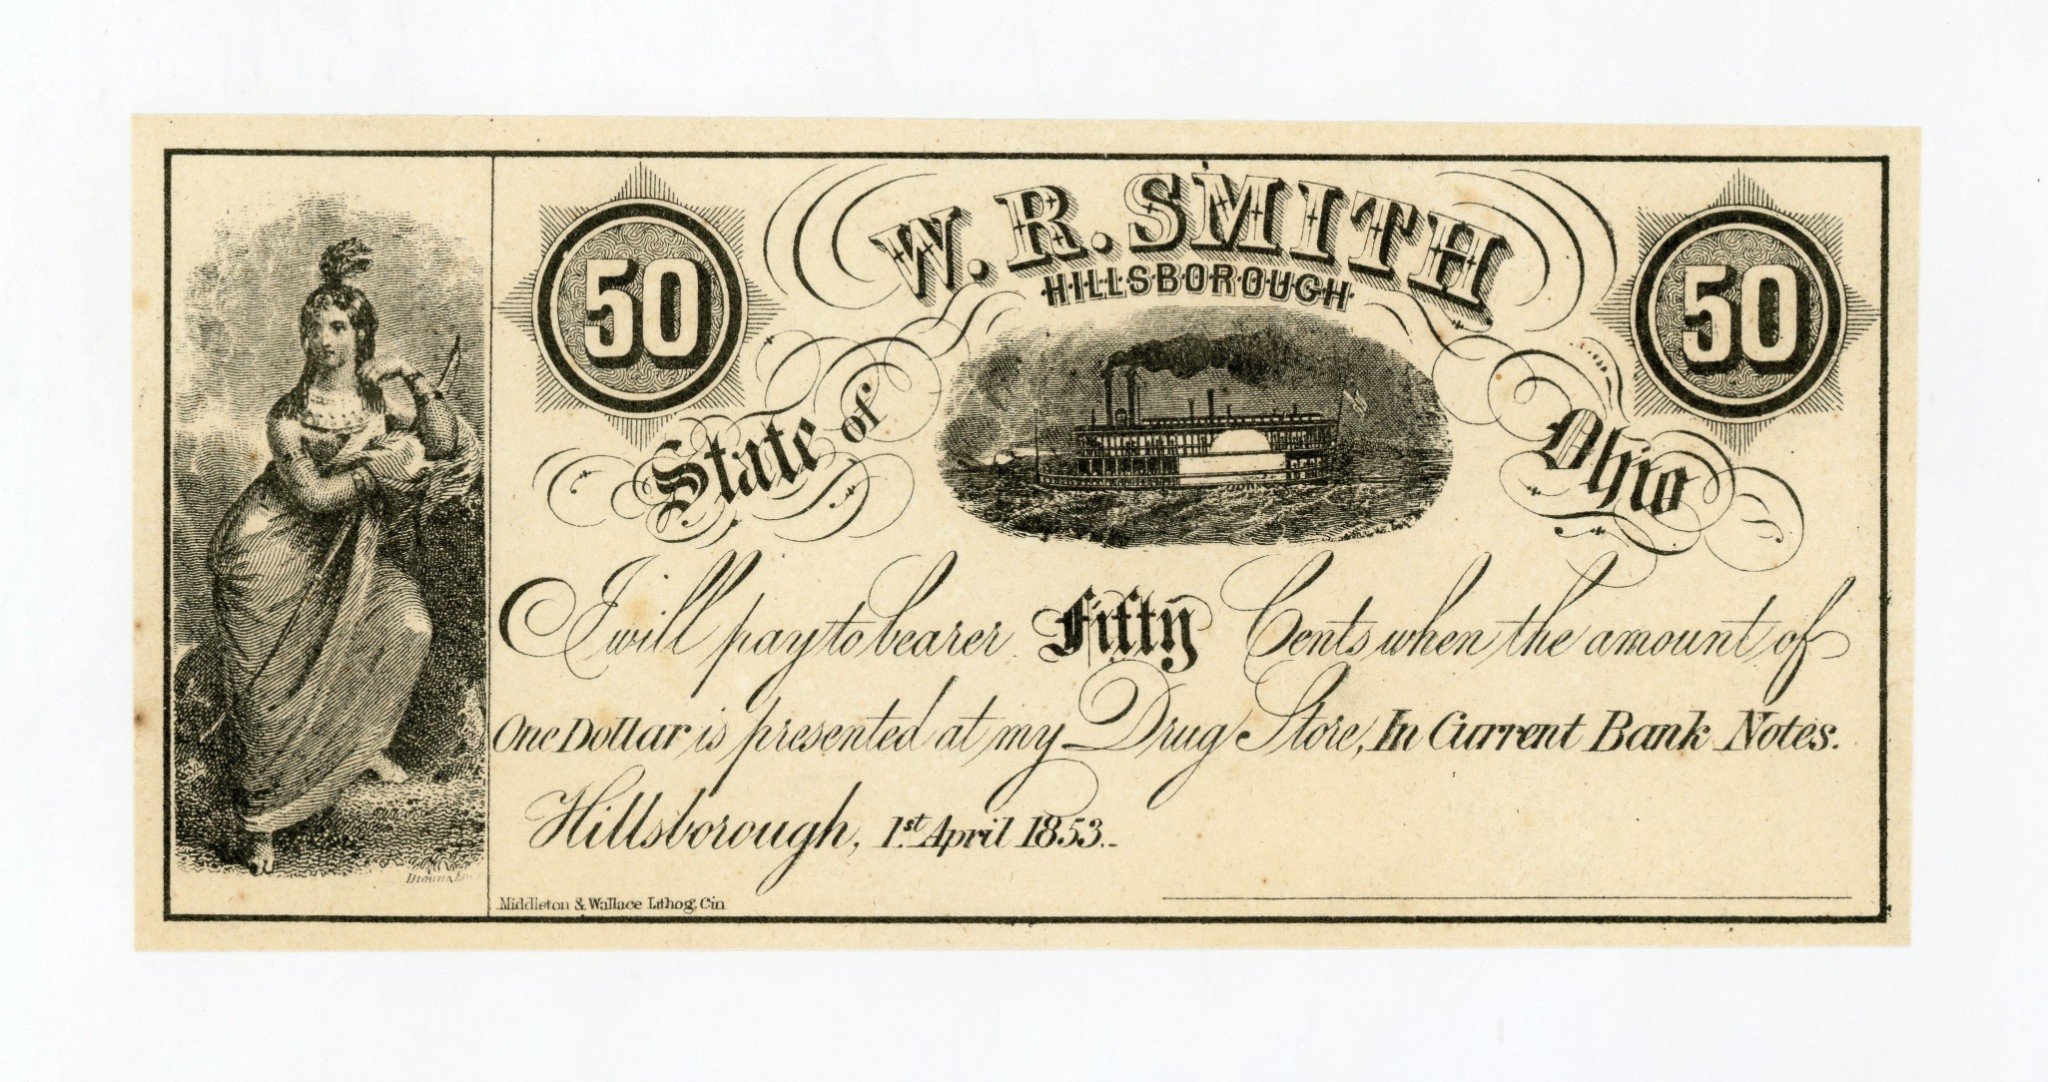 W. R. SMITH
HILLSBOROUGH
50
50
State of Ohio
I will pay to bearer Fifty Cents when the amount of
One Dollar is presented at my Drug Store, In Current Bank Notes.
Hillsborough, 1st April 1853.
Middleton & Wallace Lithog. Cin.